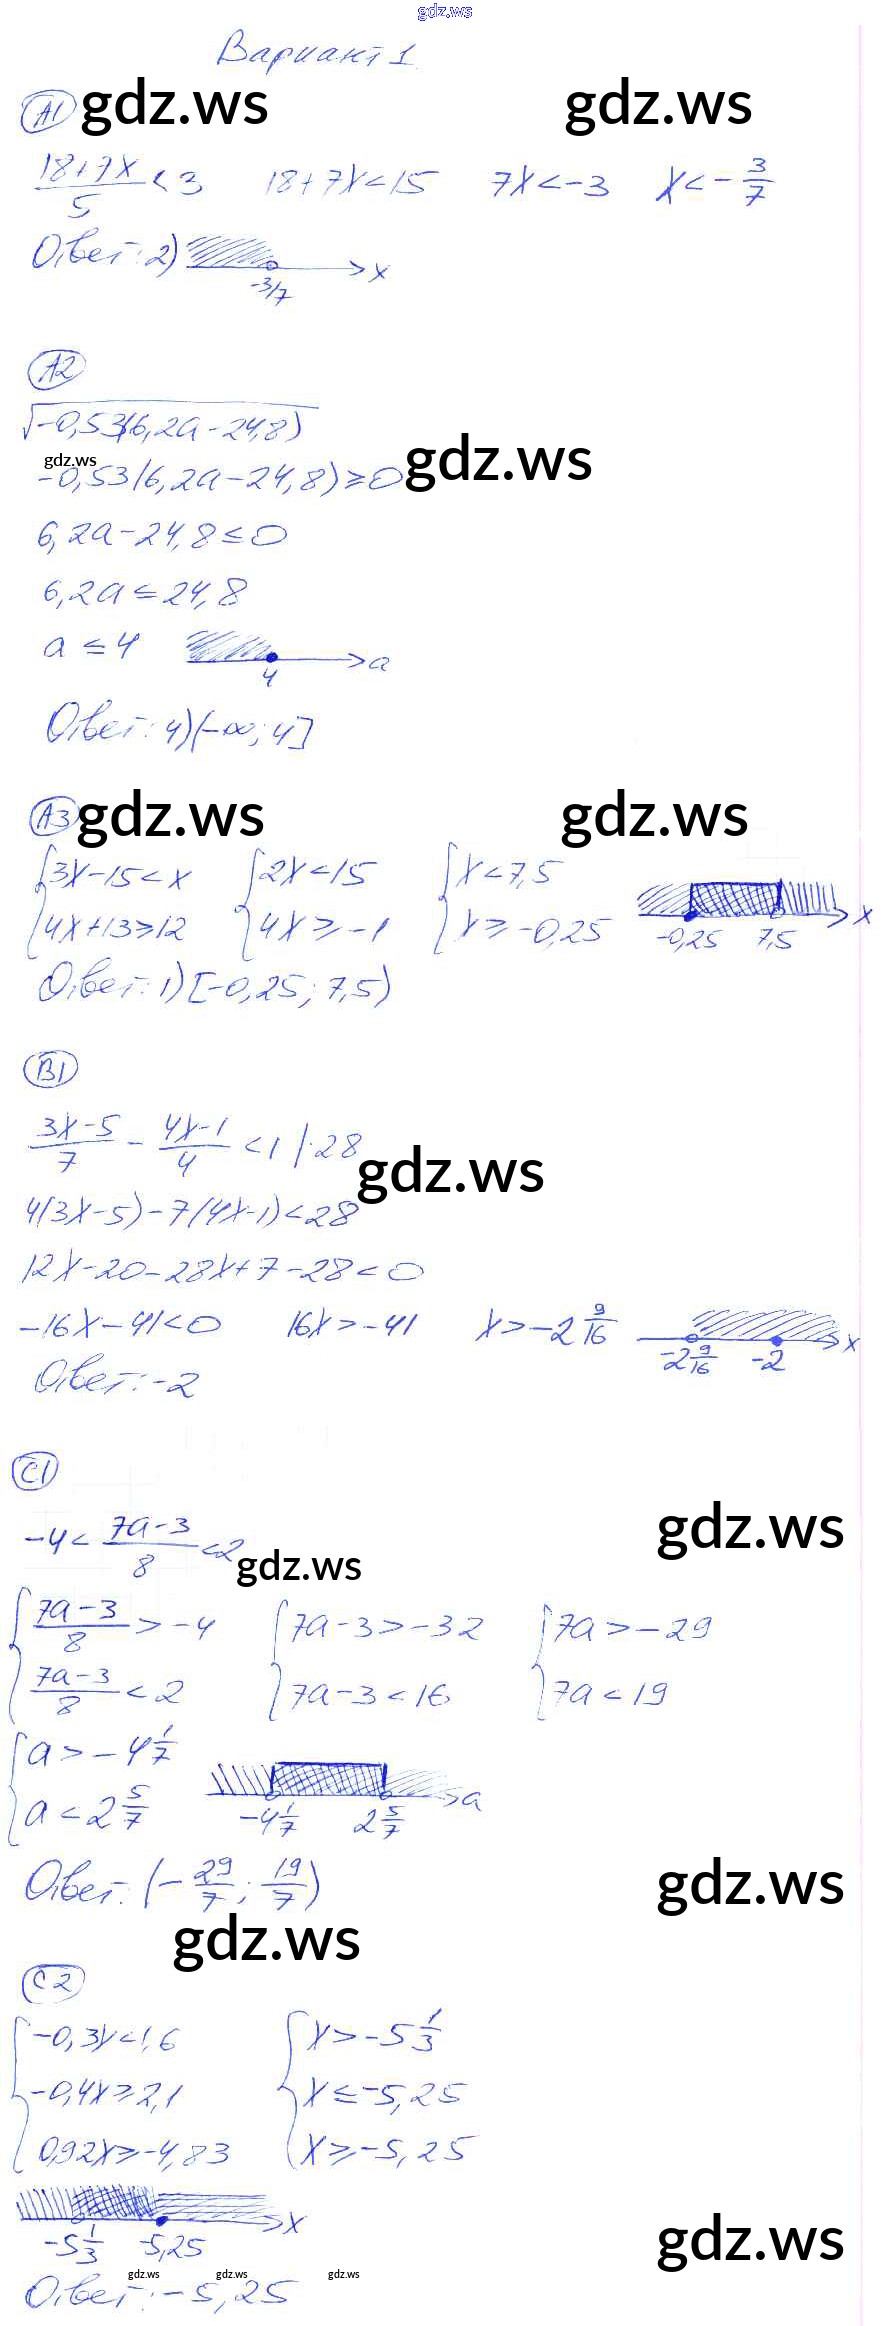 gdz.ws
Вариант 1
A1 gdz.ws gdz.ws
(18+7x)/5 < 3 18+7x<15 7x<-3 x<-3/7
Ответ: 2) -3/7 x
A2
√(-0,53(6,2a-24,8))
gdz.ws gdz.ws
-0,53(6,2a-24,8)≥0
6,2a-24,8≤0
6,2a≤24,8
a≤4 4 a
Ответ: 4)(-∞; 4]
A3 gdz.ws gdz.ws
{3x-15<x {2x<15 {x<7,5
{4x+13≥12 {4x≥-1 {x≥-0,25 -0,25 7,5 x
Ответ: 1) [-0,25; 7,5)
B1
(3x-5)/7 - (4x-1)/4 < 1 |·28
gdz.ws
4(3x-5)-7(4x-1)<28
12x-20-28x+7-28<0
-16x-41<0 16x>-41 x>-2 9/16 -2 9/16 -2 x
Ответ: -2
C1
gdz.ws
-4<(7a-3)/8<2
gdz.ws
{(7a-3)/8>-4 {7a-3>-32 {7a>-29
{(7a-3)/8<2 {7a-3<16 {7a<19
{a>-4 1/7
{a<2 5/7 -4 1/7 2 5/7 a
Ответ: (-29/7; 19/7)
gdz.ws
gdz.ws
C2
{-0,3x<1,6 {x>-5 1/3
{-0,4x≥2,1 {x≤-5,25
{0,92x≥-4,83 {x≥-5,25
-5 1/3 -5,25 x
gdz.ws
gdz.ws gdz.ws gdz.ws
Ответ: -5,25